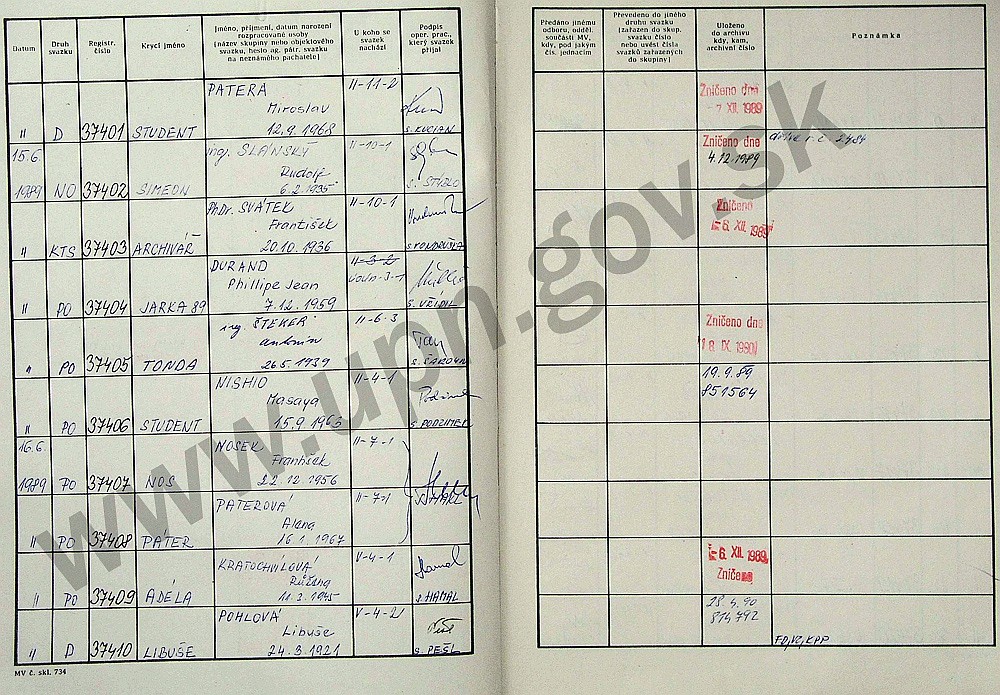 Datum
Druh svazku
Registr. číslo
Krycí jméno
Jméno, příjmení, datum narození
rozpracované osoby
(název skupiny nebo objektového
svazku, heslo ag. pátr. svazku
na neznámého pachatele)
U koho se
svazek
nachází
Podpis
oper. prac.,
který svazek
přijal
Předáno jinému
odboru, odděl.
součásti MV,
kdy, pod jakým
čís. jednacím
Převedeno do jiného
druhu svazku
(zařazen do skup.
svazku číslo
nebo uvést čísla
svazků zařazených
do skupiny)
Uloženo
do archivu
kdy, kam,
archivní číslo
Poznámka
PATERA II-11-2
Miroslav
" D 37401 STUDENT 12.9.1968 s. KUCIAN
Zničeno dne
-7. XII. 1989
15.6. ing. SLÁNSKÝ II-10-1
Rudolf
1989 NO 37402 SIMEON 6.2.1935 s. STÝBLO
Zničeno dne
4.12.1989
PhDr. SVÁTEK II-10-1
František
" KTS 37403 ARCHIVÁŘ 20.10.1936 s. VONDRUŠKA
Zničeno
-6. XII. 1989
DURAND II-3-2
Phillipe Jean
" PO 37404 JARKA 89 7.12.1959
ing. ŠTEKER II-6-3
Antonín
" PO 37405 TONDA 26.5.1939
Zničeno dne
NISHIO II-4-1
Masaya
" PO 37406 STUDENT s. PODZIMEK
19.9.89
851564
16.6. NOSEK II-7-1
František
1989 PO 37407 NOS 22.12.1956
PATEROVÁ II-7-1
Alena
" PO 37408 PÁTER 16.1.1967 s. HAKL
KRATOCHVÍLOVÁ V-4-1
Růžena
" PO 37409 ADÉLA s. HAMAL
-6. XII. 1989
Zničeno
POHLOVÁ V-4-2
Libuše
" D 37410 LIBUŠE 24.3.1921 s. PEŠL
814792
MV č. skl. 734
www.upn.gov.sk